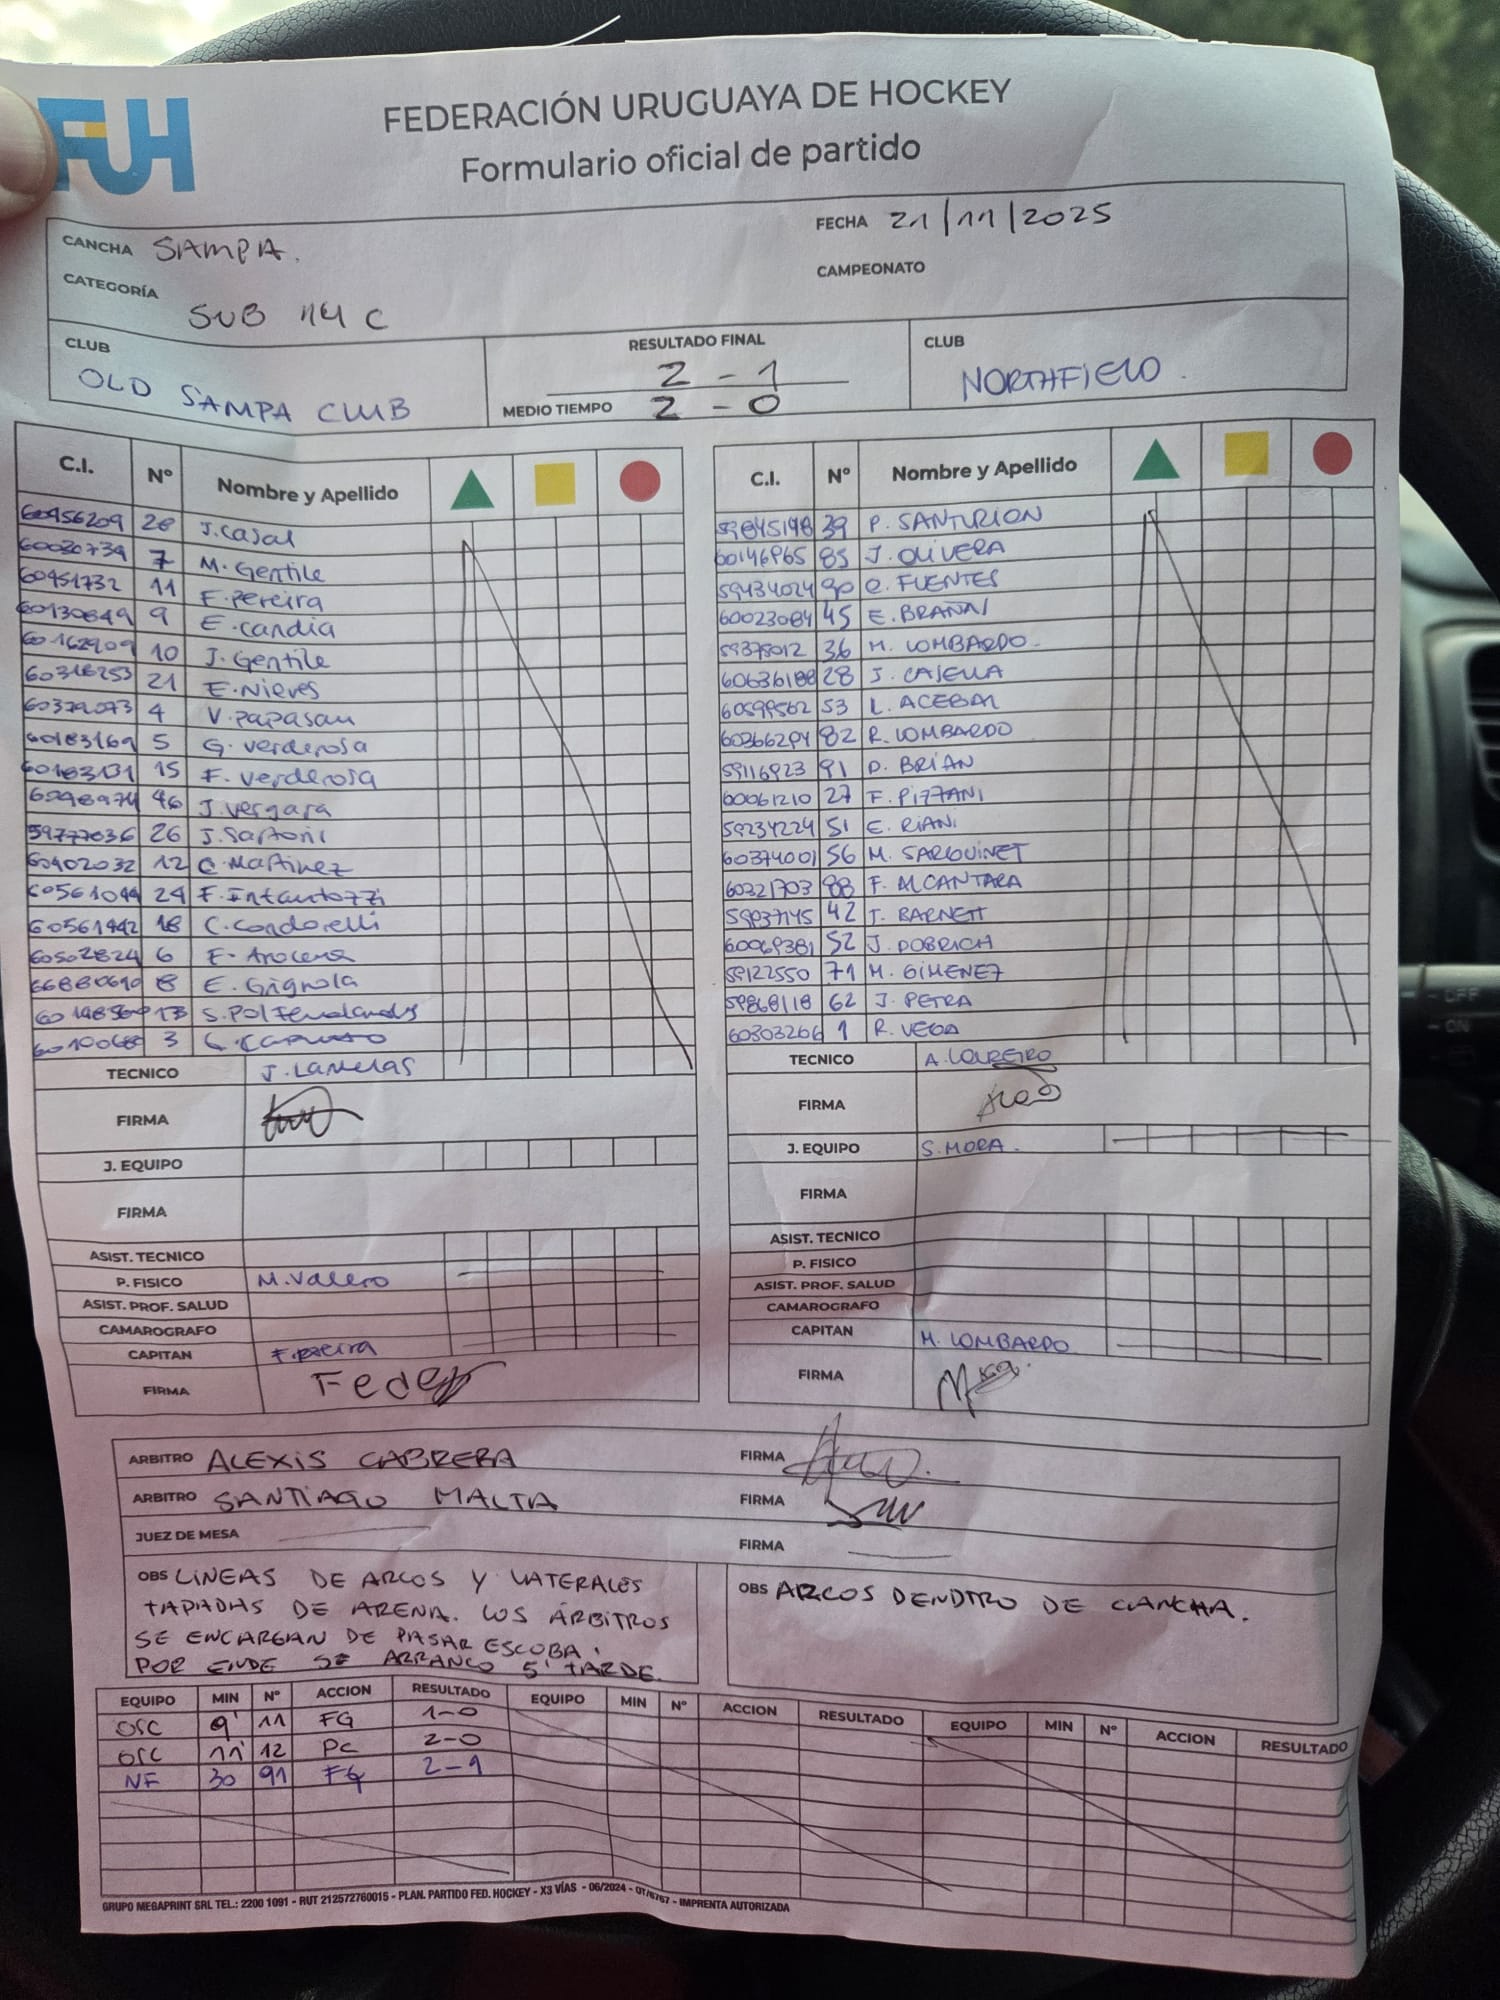 FUH
FEDERACIÓN URUGUAYA DE HOCKEY
Formulario oficial de partido
CANCHA SAMPA.
FECHA 21/11/2025
CATEGORÍA SUB 14 C
CAMPEONATO
CLUB OLD SAMPA CLUB
RESULTADO FINAL 2 - 1
MEDIO TIEMPO 2 - 0
CLUB NORTHFIELD.
C.I. Nº Nombre y Apellido
60456209 J. Casal
7 M. Gentile
60451732 11 F. Pereira
60130849 9 E. Candia
60162909 10 J. Gentile
60316253 21 E. Nieves
60379073 4 V. Papasan
60183169 5 G. Verderosa
60183131 15 F. Verderosa
46 J. Vergara
59777036 26 J. Sartori
60402032 12 C. Martinez
24 F. Intautozzi
60561442 18 C. Condorelli
60502824 6 F. Arocena
66880610 8 E. Gignola
13
3
TECNICO
FIRMA
J. EQUIPO
FIRMA
ASIST. TECNICO
P. FISICO M. Valero
ASIST. PROF. SALUD
CAMAROGRAFO
CAPITAN F. Pereira
FIRMA
C.I. Nº Nombre y Apellido
59845198 39 P. SANTURION
60146965 85 J. OLIVERA
59434024 90 C. FUENTES
60023084 45 E. BRAÑAI
59378012 36 M. LOMBARDO.
60636188 28 J. CASELLA
60599562 53 L. ACEBAL
60366294 82 R. LOMBARDO
59116923 91 D. BRIAN
60061210 27 F. PIZZANI
59234224 51 E. RIANI
60374001 56 M. SARQUINET
60321703 88 F. ALCANTARA
59937145 42 T. BARNETT
60069381 52 J. DOBRICH
59122550 71 M. GIMENEZ
59868118 62 J. PETRA
60303206 1 R. VEGA
TECNICO A. LOUREIRO
FIRMA
J. EQUIPO S. MORA.
FIRMA
ASIST. TECNICO
P. FISICO
ASIST. PROF. SALUD
CAMAROGRAFO
CAPITAN M. LOMBARDO
FIRMA
ARBITRO ALEXIS CABRERA FIRMA
ARBITRO SANTIAGO MALTA FIRMA
JUEZ DE MESA FIRMA
OBS LINEAS DE ARCOS Y LATERALES
TAPADAS DE ARENA. LOS ÁRBITROS
SE ENCARGAN DE PASAR ESCOBA.
POR ENDE SE ARRANCO 5' TARDE.
OBS ARCOS DENDTRO DE CANCHA.
EQUIPO MIN Nº ACCION RESULTADO EQUIPO MIN Nº ACCION RESULTADO EQUIPO MIN Nº ACCION RESULTADO
OSC 9' 11 FG 1-0
OSC 11' 12 PC 2-0
NF 30 91 FG 2-1
GRUPO MEGAPRINT SRL TEL.: 2200 1091 - RUT 212572760015 - PLAN. PARTIDO FED. HOCKEY - X3 VÍAS - 06/2024 - OT/6767 - IMPRENTA AUTORIZADA
OFF
ON